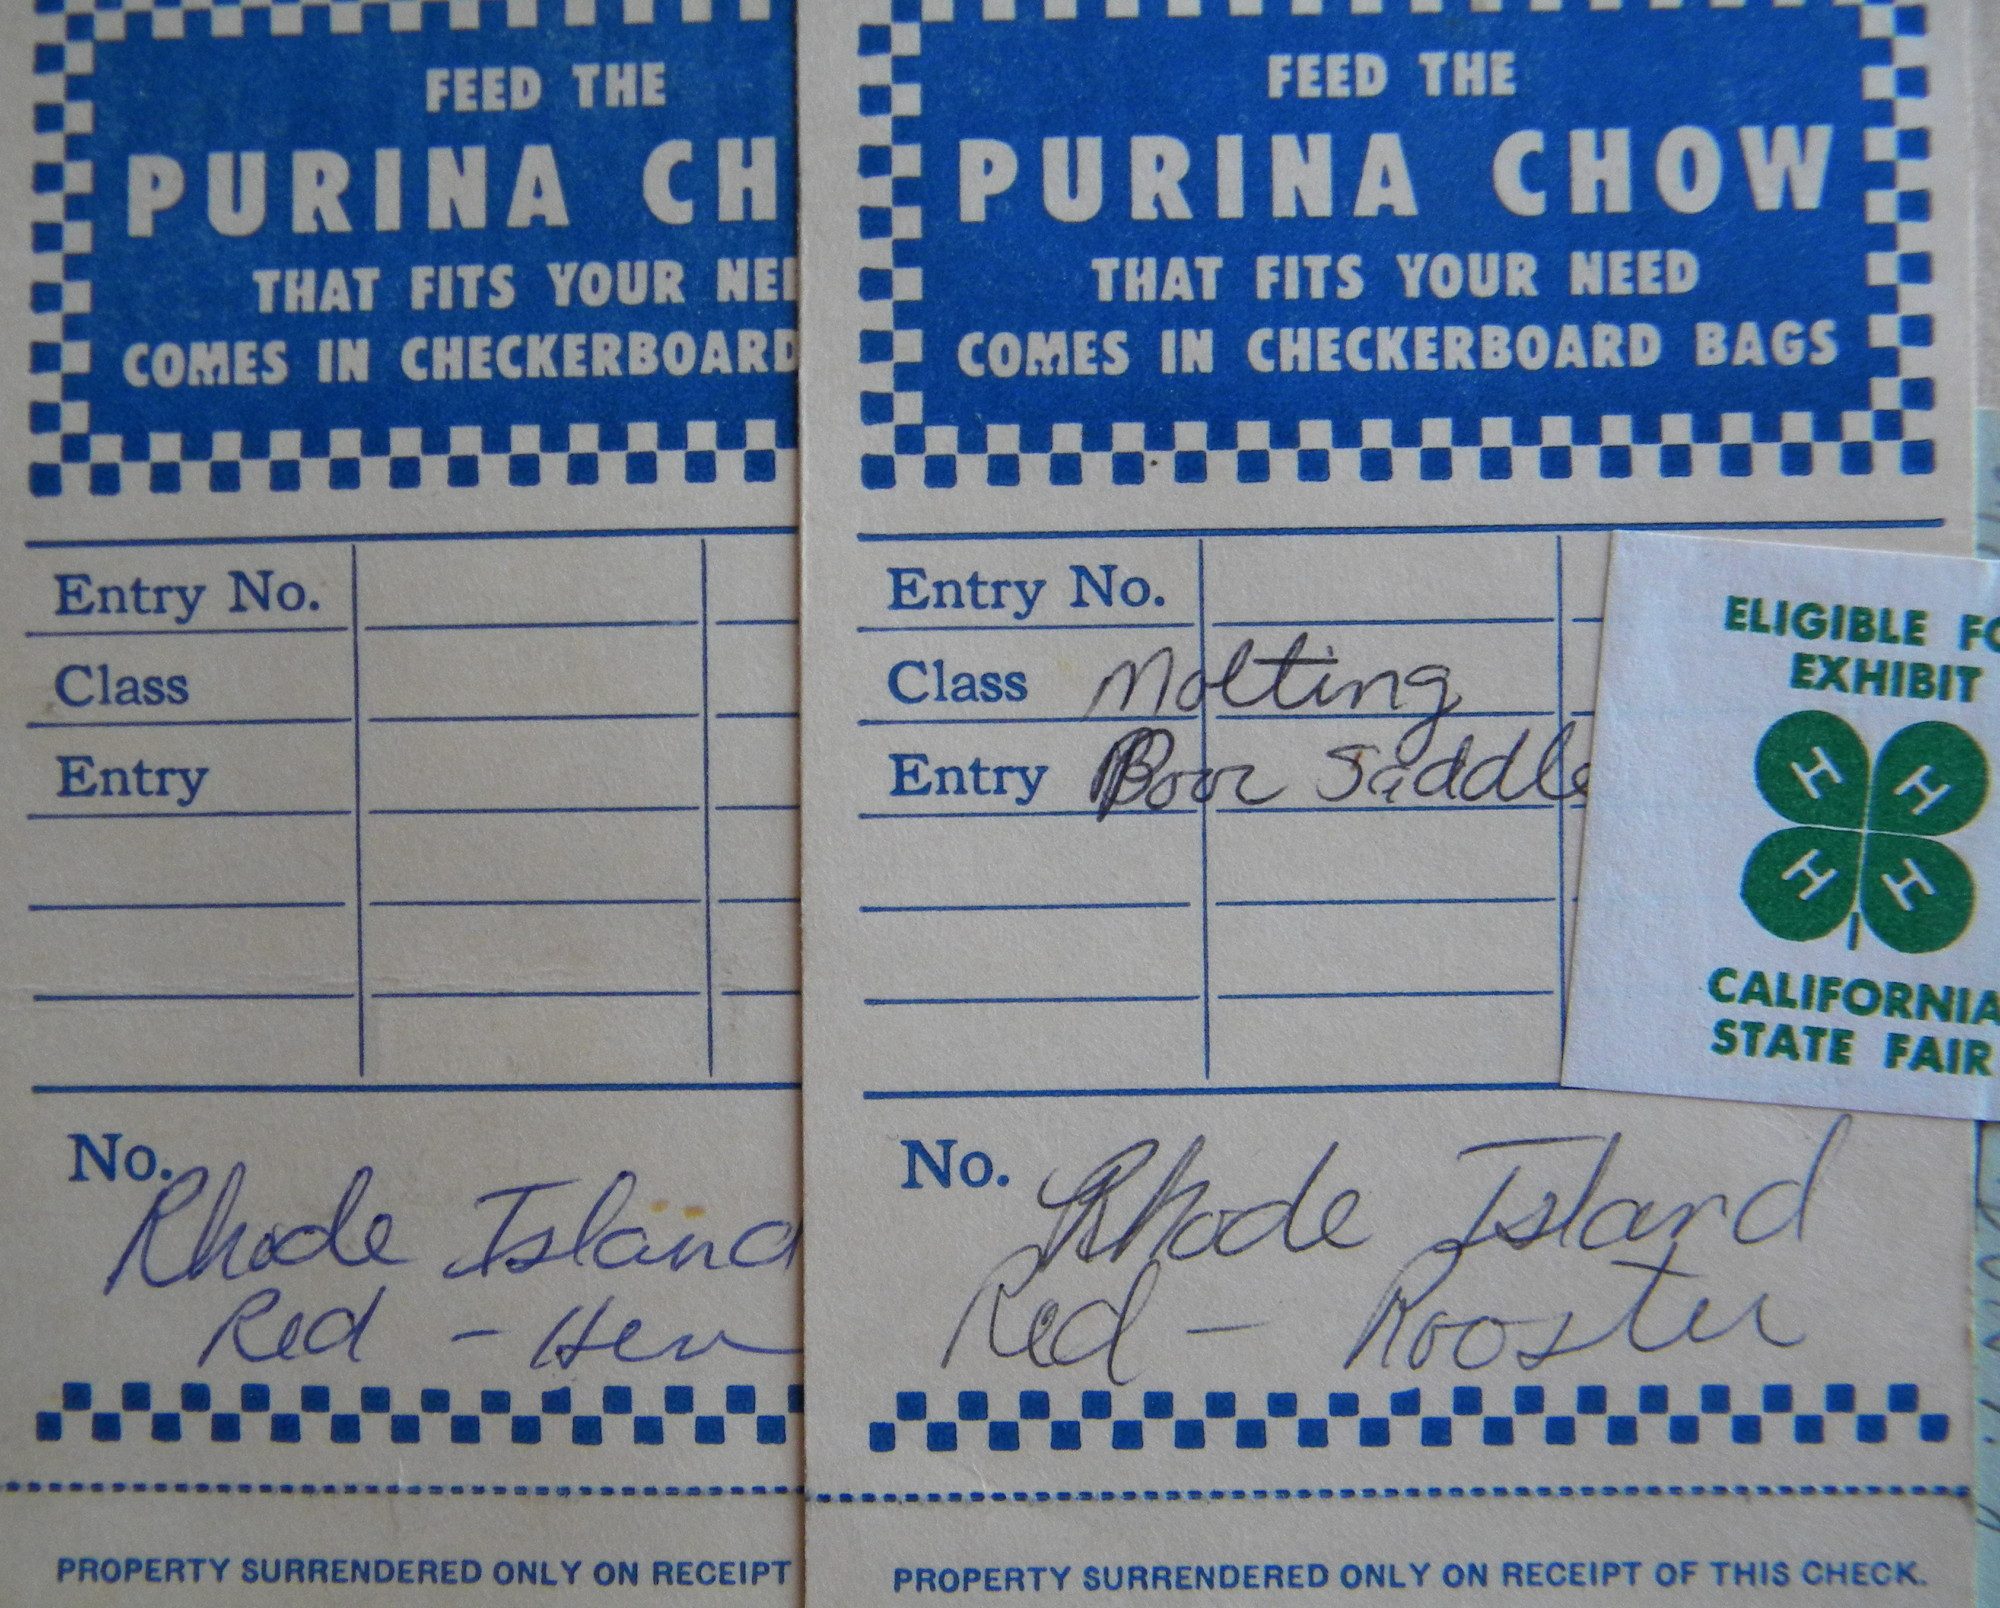 FEED THE
PURINA CH
THAT FITS YOUR NE
COMES IN CHECKERBOARD
Entry No.
Class
Entry
No.
Rhode Island
Red - Hen
PROPERTY SURRENDERED ONLY ON RECEIPT
FEED THE
PURINA CHOW
THAT FITS YOUR NEED
COMES IN CHECKERBOARD BAGS
Entry No.
Class Molting
Entry Poor Saddle
No. Rhode Island
Red - Rooster
PROPERTY SURRENDERED ONLY ON RECEIPT OF THIS CHECK.
ELIGIBLE FO
EXHIBIT
H H
H H
CALIFORNIA
STATE FAIR